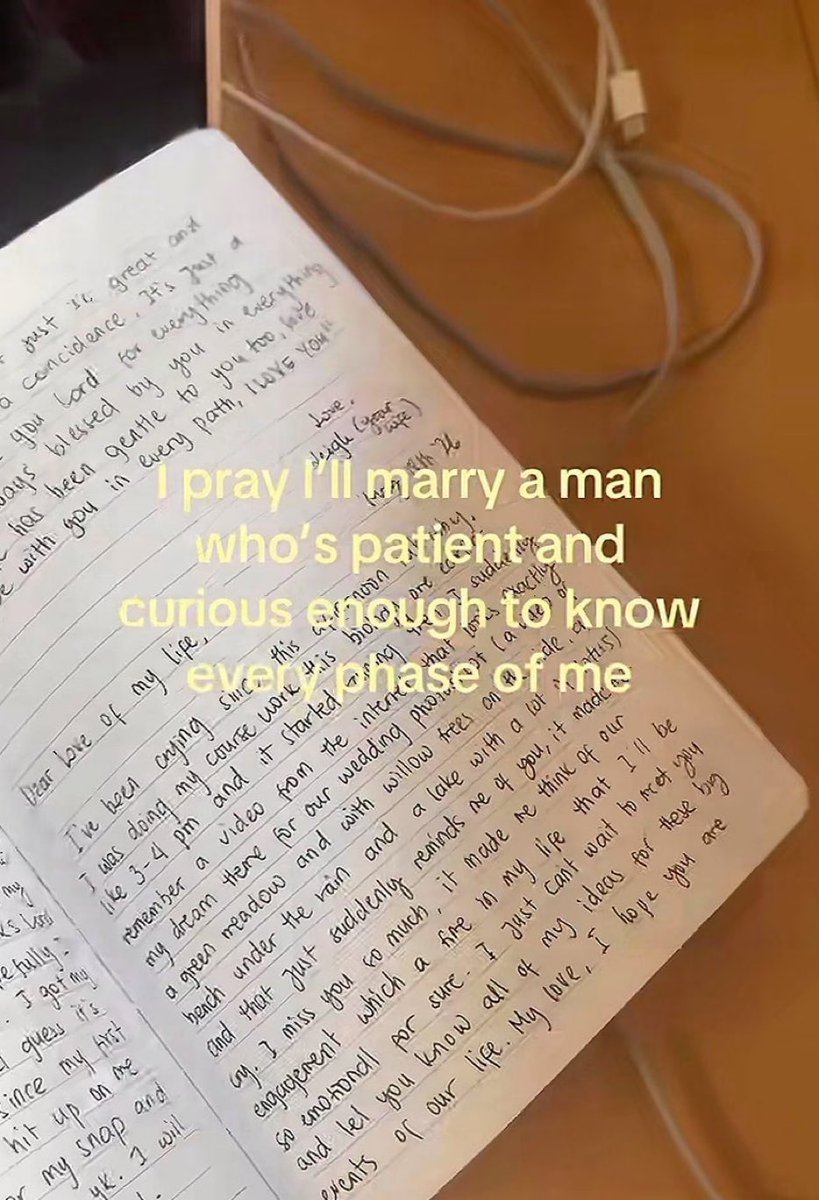 just is great and
a coincidence. It's just a
you Lord for everything
always blessed by you in everything
has been gentle to you too, love
be with you in every path, I LOVE YOU"
Love,
(your wife)
I pray I'll marry a man
who's patient and
curious enough to know
every phase of me
Dear love of my life,
I've been crying since this afternoon
I was doing my course work this
like 3-4 pm and it started raining I suddenly
remember a video from the internet that looks exactly
my dream theme for our wedding photoshoot (a lot of
a green meadow and with willow trees on the side, a
bench under the rain and a lake with a lot
and that just suddenly reminds me of you, it made me
cry. I miss you so much, it made me think of our
engagement which a fire in my life that I'll be
so emotional for sure. I just can't wait to meet you
and let you know all of my ideas for these big
events of our life. My love, I hope you are
my
Lord
I got my
guess it's
since my first
hit up on me
my snap and
I will